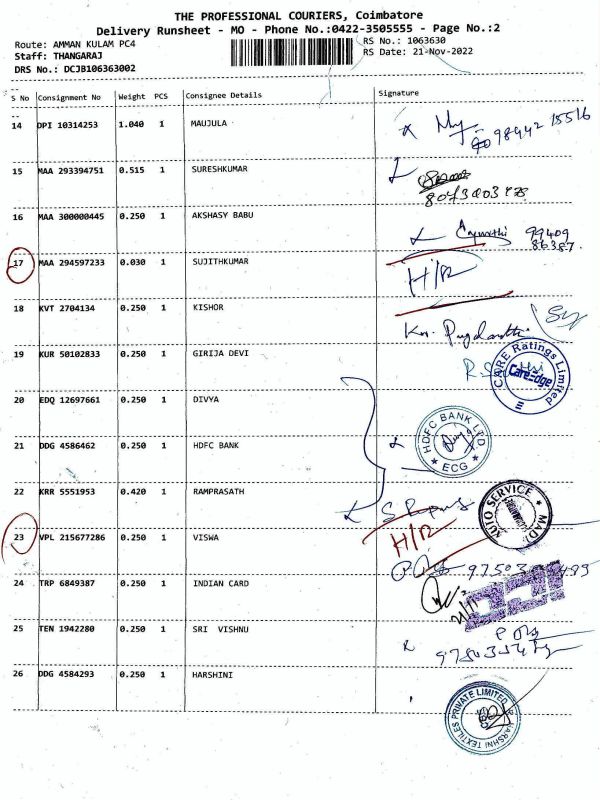 THE PROFESSIONAL COURIERS, Coimbatore
Delivery Runsheet - MO - Phone No.:0422-3505555 - Page No.:2
Route: AMMAN KULAM PC4
RS No.: 1063630
Staff: THANGARAJ
RS Date: 21-Nov-2022
DRS No.: DCJB106363002
S No Consignment No Weight PCS Consignee Details Signature
14 DPI 10314253 1.040 1 MAUJULA
98442 15516
15 MAA 293394751 0.515 1 SURESHKUMAR
16 MAA 300000445 0.250 1 AKSHASY BABU
99409
86387
17 MAA 294597233 0.030 1 SUJITHKUMAR
H/R
18 KVT 2704134 0.250 1 KISHOR
19 KUR 50102833 0.250 1 GIRIJA DEVI
CARE Ratings Limited
CareEdge
20 EDQ 12697661 0.250 1 DIVYA
21 DDG 4586462 0.250 1 HDFC BANK
HDFC BANK LTD
ECG
22 KRR 5551953 0.420 1 RAMPRASATH
AUTO SERVICE
23 VPL 215677286 0.250 1 VISWA
H/R
24 TRP 6849387 0.250 1 INDIAN CARD
25 TEN 1942280 0.250 1 SRI VISHNU
26 DDG 4584293 0.250 1 HARSHINI
HARSHNI TEXTILES PRIVATE LIMITED